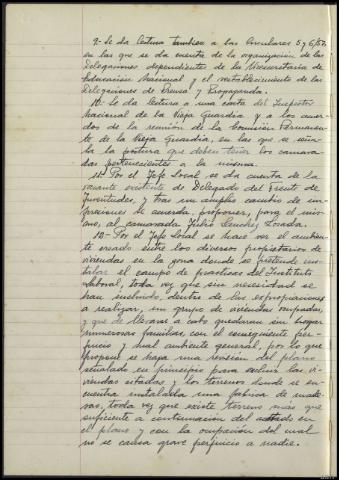 9.- Se da lectura tambien a las Circulares 5 y 6/57,
en las que se da cuenta de la organización de las
Delegaciones dependientes de la Vicesecretaria de
Educacion Nacional y el restablecimiento de las
Delegaciones de Prensa y Propaganda.
10.- Se da lectura a una carta del Inspector
Nacional de la Vieja Guardia y a los acuer-
dos de la reunión de la Comisión Permanen-
te de la Vieja Guardia, en las que se seña-
la la postura que deben tener los camara-
das pertenecientes a la misma.
11.- Por el Jefe Local se da cuenta de la
vacante existente de Delegado del Frente de
Juventudes, y tras un amplio cambio de im-
presiones se acuerda, proponer, para el mis-
mo, al camarada Julio Sanchez Losada.
12.- Por el Jefe Local se hace ver el ambien-
te creado entre los diversos propietarios de
viviendas en la zona donde se pretende ins-
talar el campo de practicas del Instituto
Laboral, toda vez que sin necesidad se
han incluido, dentro de las expropiaciones
a realizar, un grupo de viviendas ocupadas,
y que de llevarse a cabo quedarian sin hogar
numerosas familias, con el consiguiente per-
juicio y mal ambiente general, por lo que
propone se haga una revisión del plano
señalado en principio para excluir las vi-
viendas citadas y los terrenos donde se en-
cuentra instalada una fabrica de made-
ras, toda vez que existe terreno mas que
suficiente a continuacion del en
el plano y con la ocupación del cual
no se causa grave perjuicio a nadie.